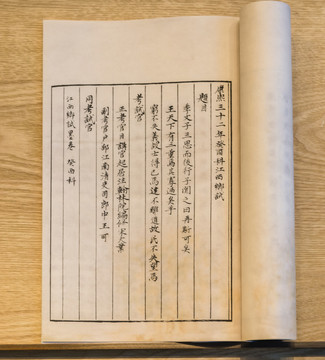 康熙三十二年癸酉科江南鄉試
題目
季文子三思而後行子聞之曰再斯可矣
王天下有三重焉其寡過矣乎
窮不失義故士得己焉達不離道故民不失望焉
考試官
正考官日講官起居注翰林院編修宋大業
副考官戶部江南清吏司郎中王可
同考試官
江南鄉試墨卷 癸酉科